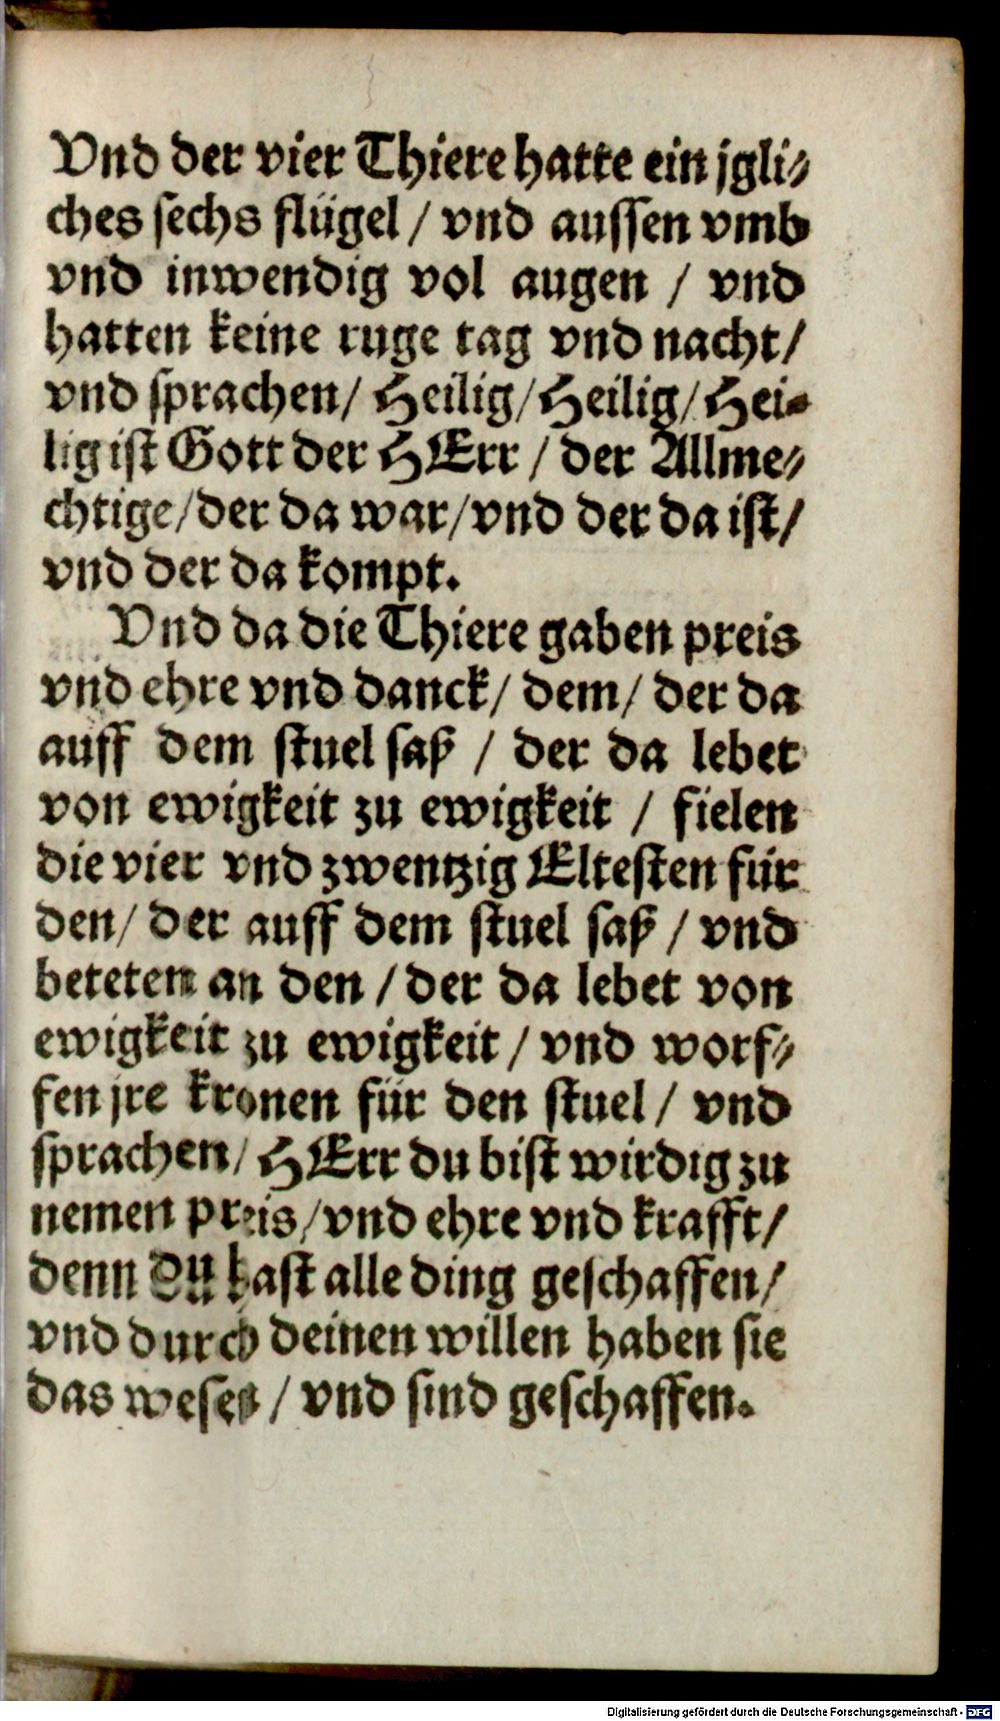 Vnd der vier Thiere hatte ein jgli⸗
ches sechs flügel / vnd aussen vmb
vnd inwendig vol augen / vnd
hatten keine ruge tag vnd nacht /
vnd sprachen / Heilig / Heilig / Hei⸗
lig ist Gott der HErr / der Allme⸗
chtige / der da war / vnd der da ist /
vnd der da kompt.
Vnd da die Thiere gaben preis
vnd ehre vnd danck / dem / der da
auff dem stuel saß / der da lebet
von ewigkeit zu ewigkeit / fielen
die vier vnd zwentzig Eltesten für
den / der auff dem stuel saß / vnd
beteten an den / der da lebet von
ewigkeit zu ewigkeit / vnd worf⸗
fen jre kronen für den stuel / vnd
sprachen / HErr du bist wirdig zu
nemen preis / vnd ehre vnd krafft /
denn du hast alle ding geschaffen /
vnd durch deinen willen haben sie
das wesen / vnd sind geschaffen.
Digitalisierung gefördert durch die Deutsche Forschungsgemeinschaft - DFG